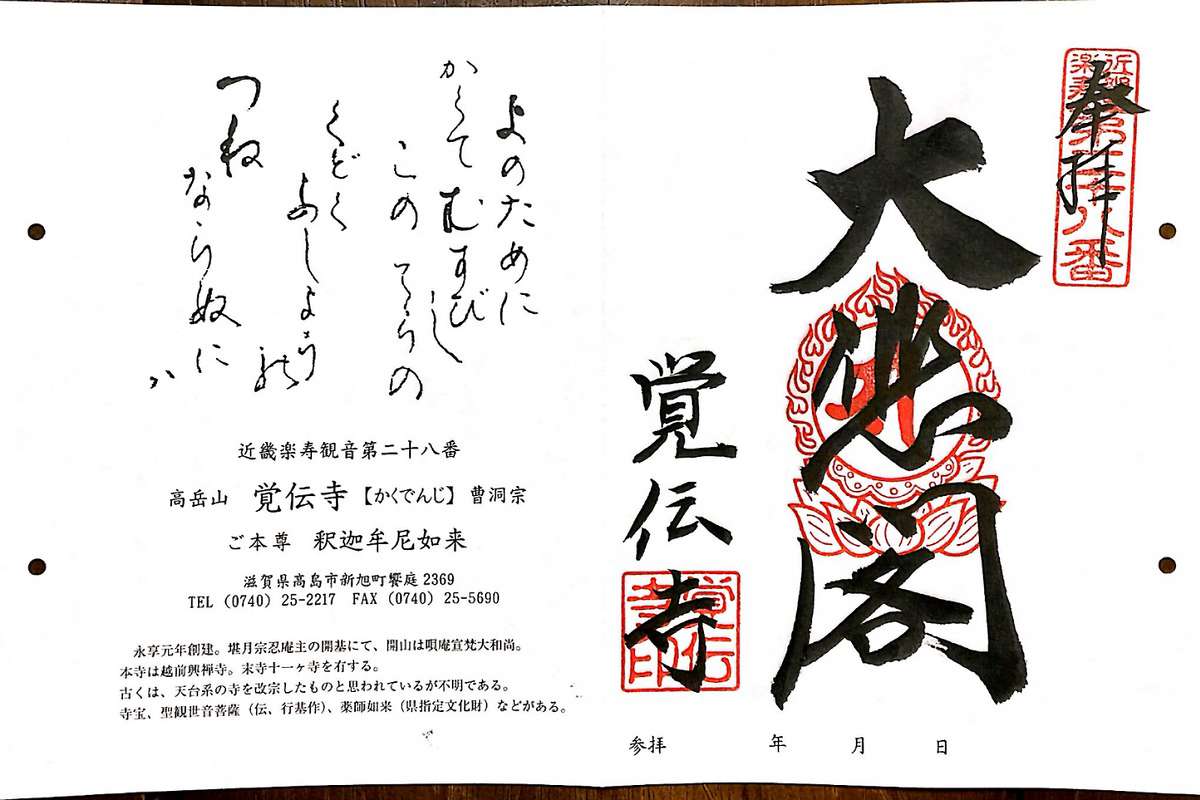 奉拝
近畿楽寿
第二十八番
大悲閣
覚伝寺
覚伝寺印
参拝　年　月　日
よのために
かくてむすびし
このてらの
くどく
つね
ならぬに
近畿楽寿観音第二十八番
高岳山　覚伝寺【かくでんじ】　曹洞宗
ご本尊　釈迦牟尼如来
滋賀県高島市新旭町饗庭2369
TEL (0740) 25-2217　FAX (0740) 25-5690
永享元年創建。堪月宗忍庵主の開基にて、開山は唄庵宣梵大和尚。
本寺は越前興禅寺。末寺十一ヶ寺を有する。
古くは、天台系の寺を改宗したものと思われているが不明である。
寺宝、聖観世音菩薩（伝、行基作）、薬師如来（県指定文化財）などがある。